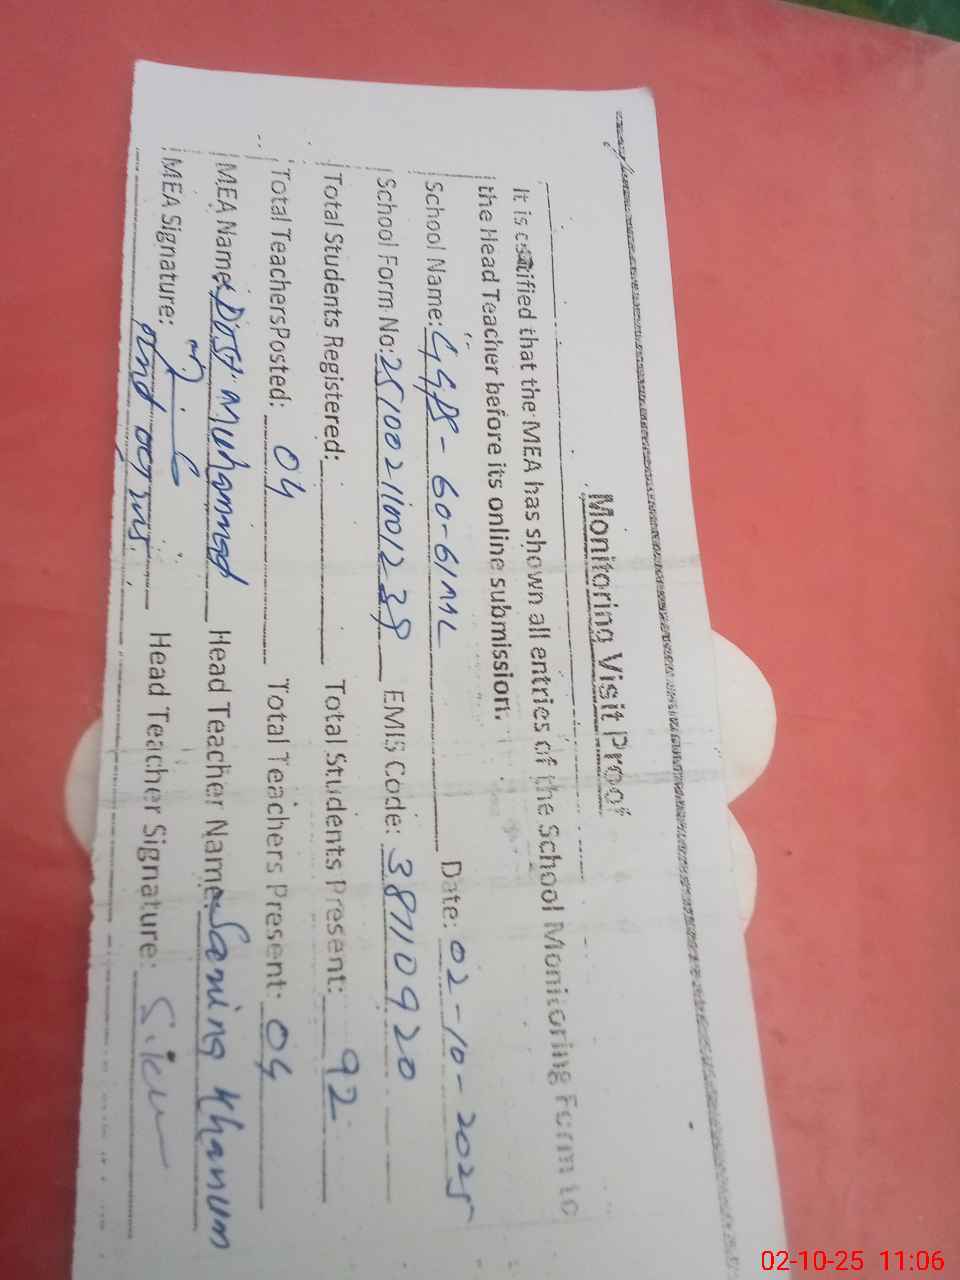 Monitoring Visit Proof
It is certified that the MEA has shown all entries of the School Monitoring Form to
the Head Teacher before its online submission.
School Name: GGPS-60-61ML Date: 02-10-2025
School Form No: EMIS Code: 38710920
Total Students Registered: Total Students Present: 92
Total Teachers Posted: 04 Total Teachers Present: 04
MEA Name: Dost Muhammad Head Teacher Name: Khanum
MEA Signature: Head Teacher Signature:
02-10-25 11:06